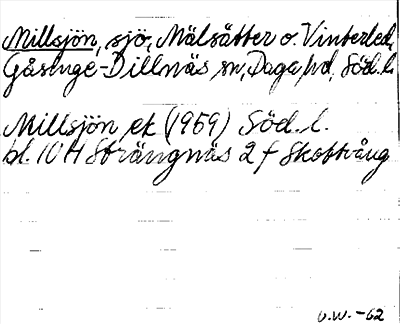 Millsjön, sjö, Mälsätter o. Vinterled,
Gåsinge-Dillnäs sn, Daga hd, Söd. l.
Millsjön ek (1959) Söd. l.
bl. 10 H Strängnäs 2 f Skottvång
U.W. -62